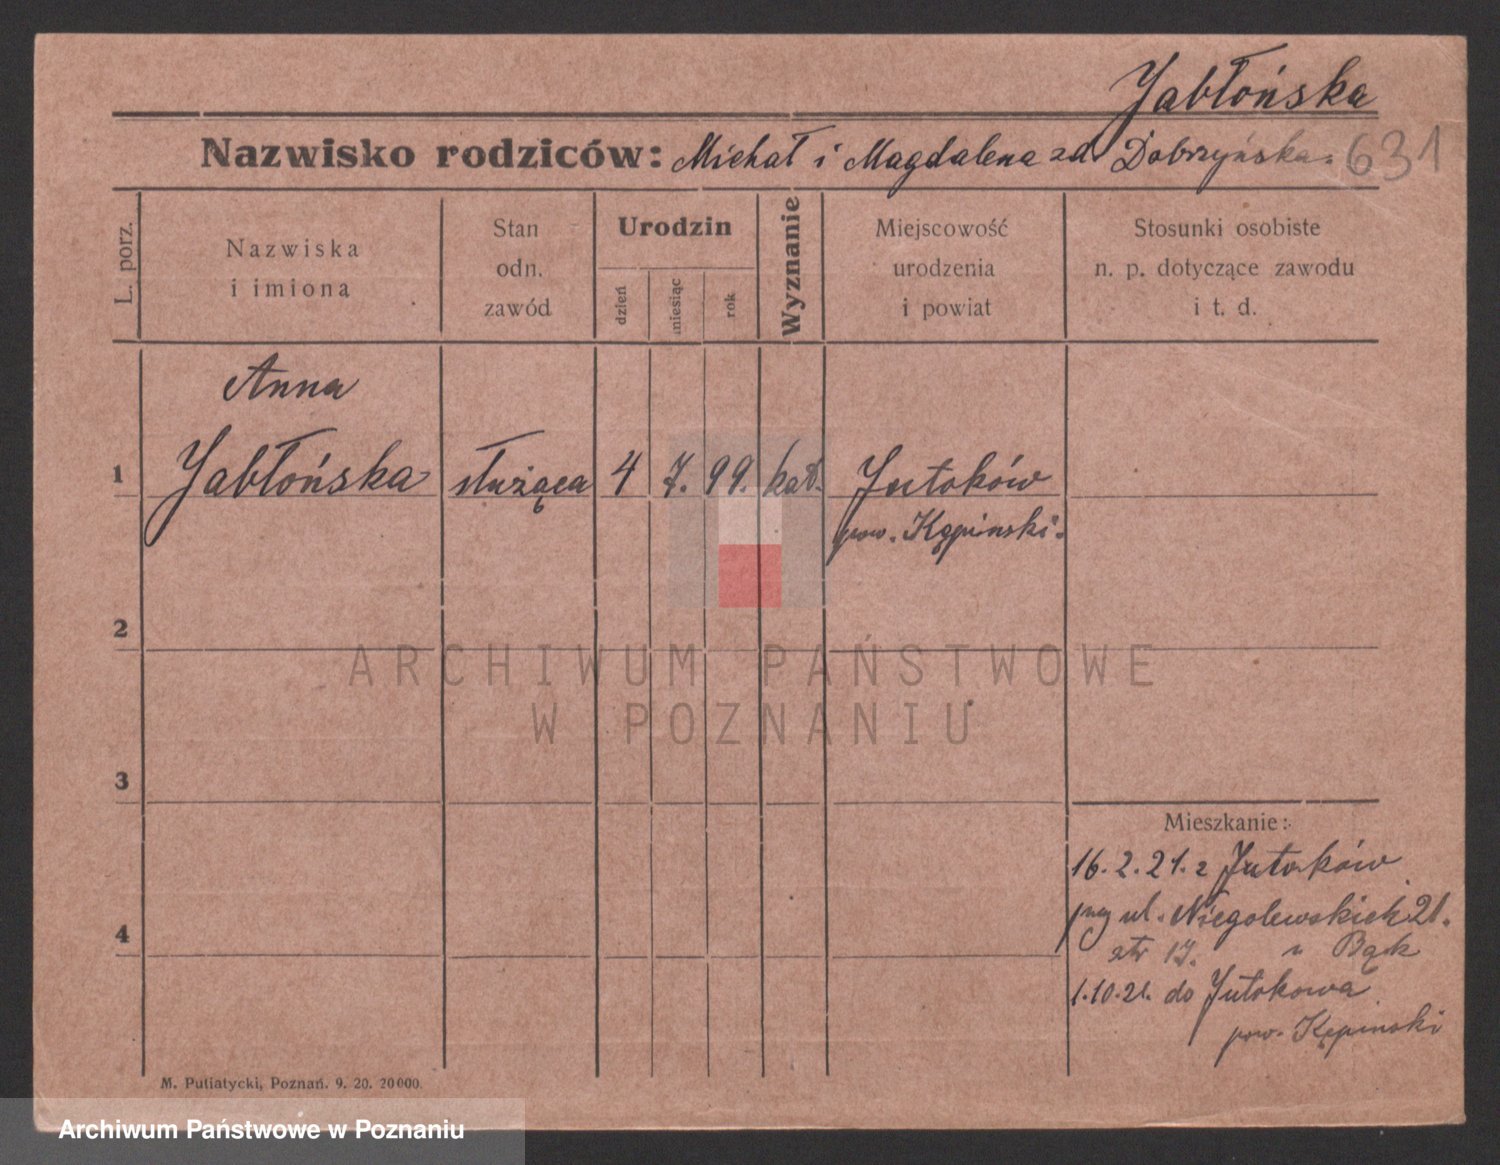 Jabłońska
Nazwisko rodziców: Michał i Magdalena zd. Dobrzyńska. 631
L. porz.
Nazwiska
i imiona
Stan
odn.
zawód
Urodzin
dzień
miesiąc
rok
Wyznanie
Miejscowość
urodzenia
i powiat
Stosunki osobiste
n. p. dotyczące zawodu
i t. d.
Anna
1 Jabłońska służąca 4 7. 99. kat. Jutoków
pow. Kępinski.
2
3
4
Mieszkanie:
16.2.21. z Jutoków
ul. Niegolewskich 21.
17. u Bąk
1.10.21. do Jutokowa
pow. Kępinski
M. Putiatycki, Poznań. 9. 20. 20000.
ARCHIWUM PAŃSTWOWE
W POZNANIU
Archiwum Państwowe w Poznaniu